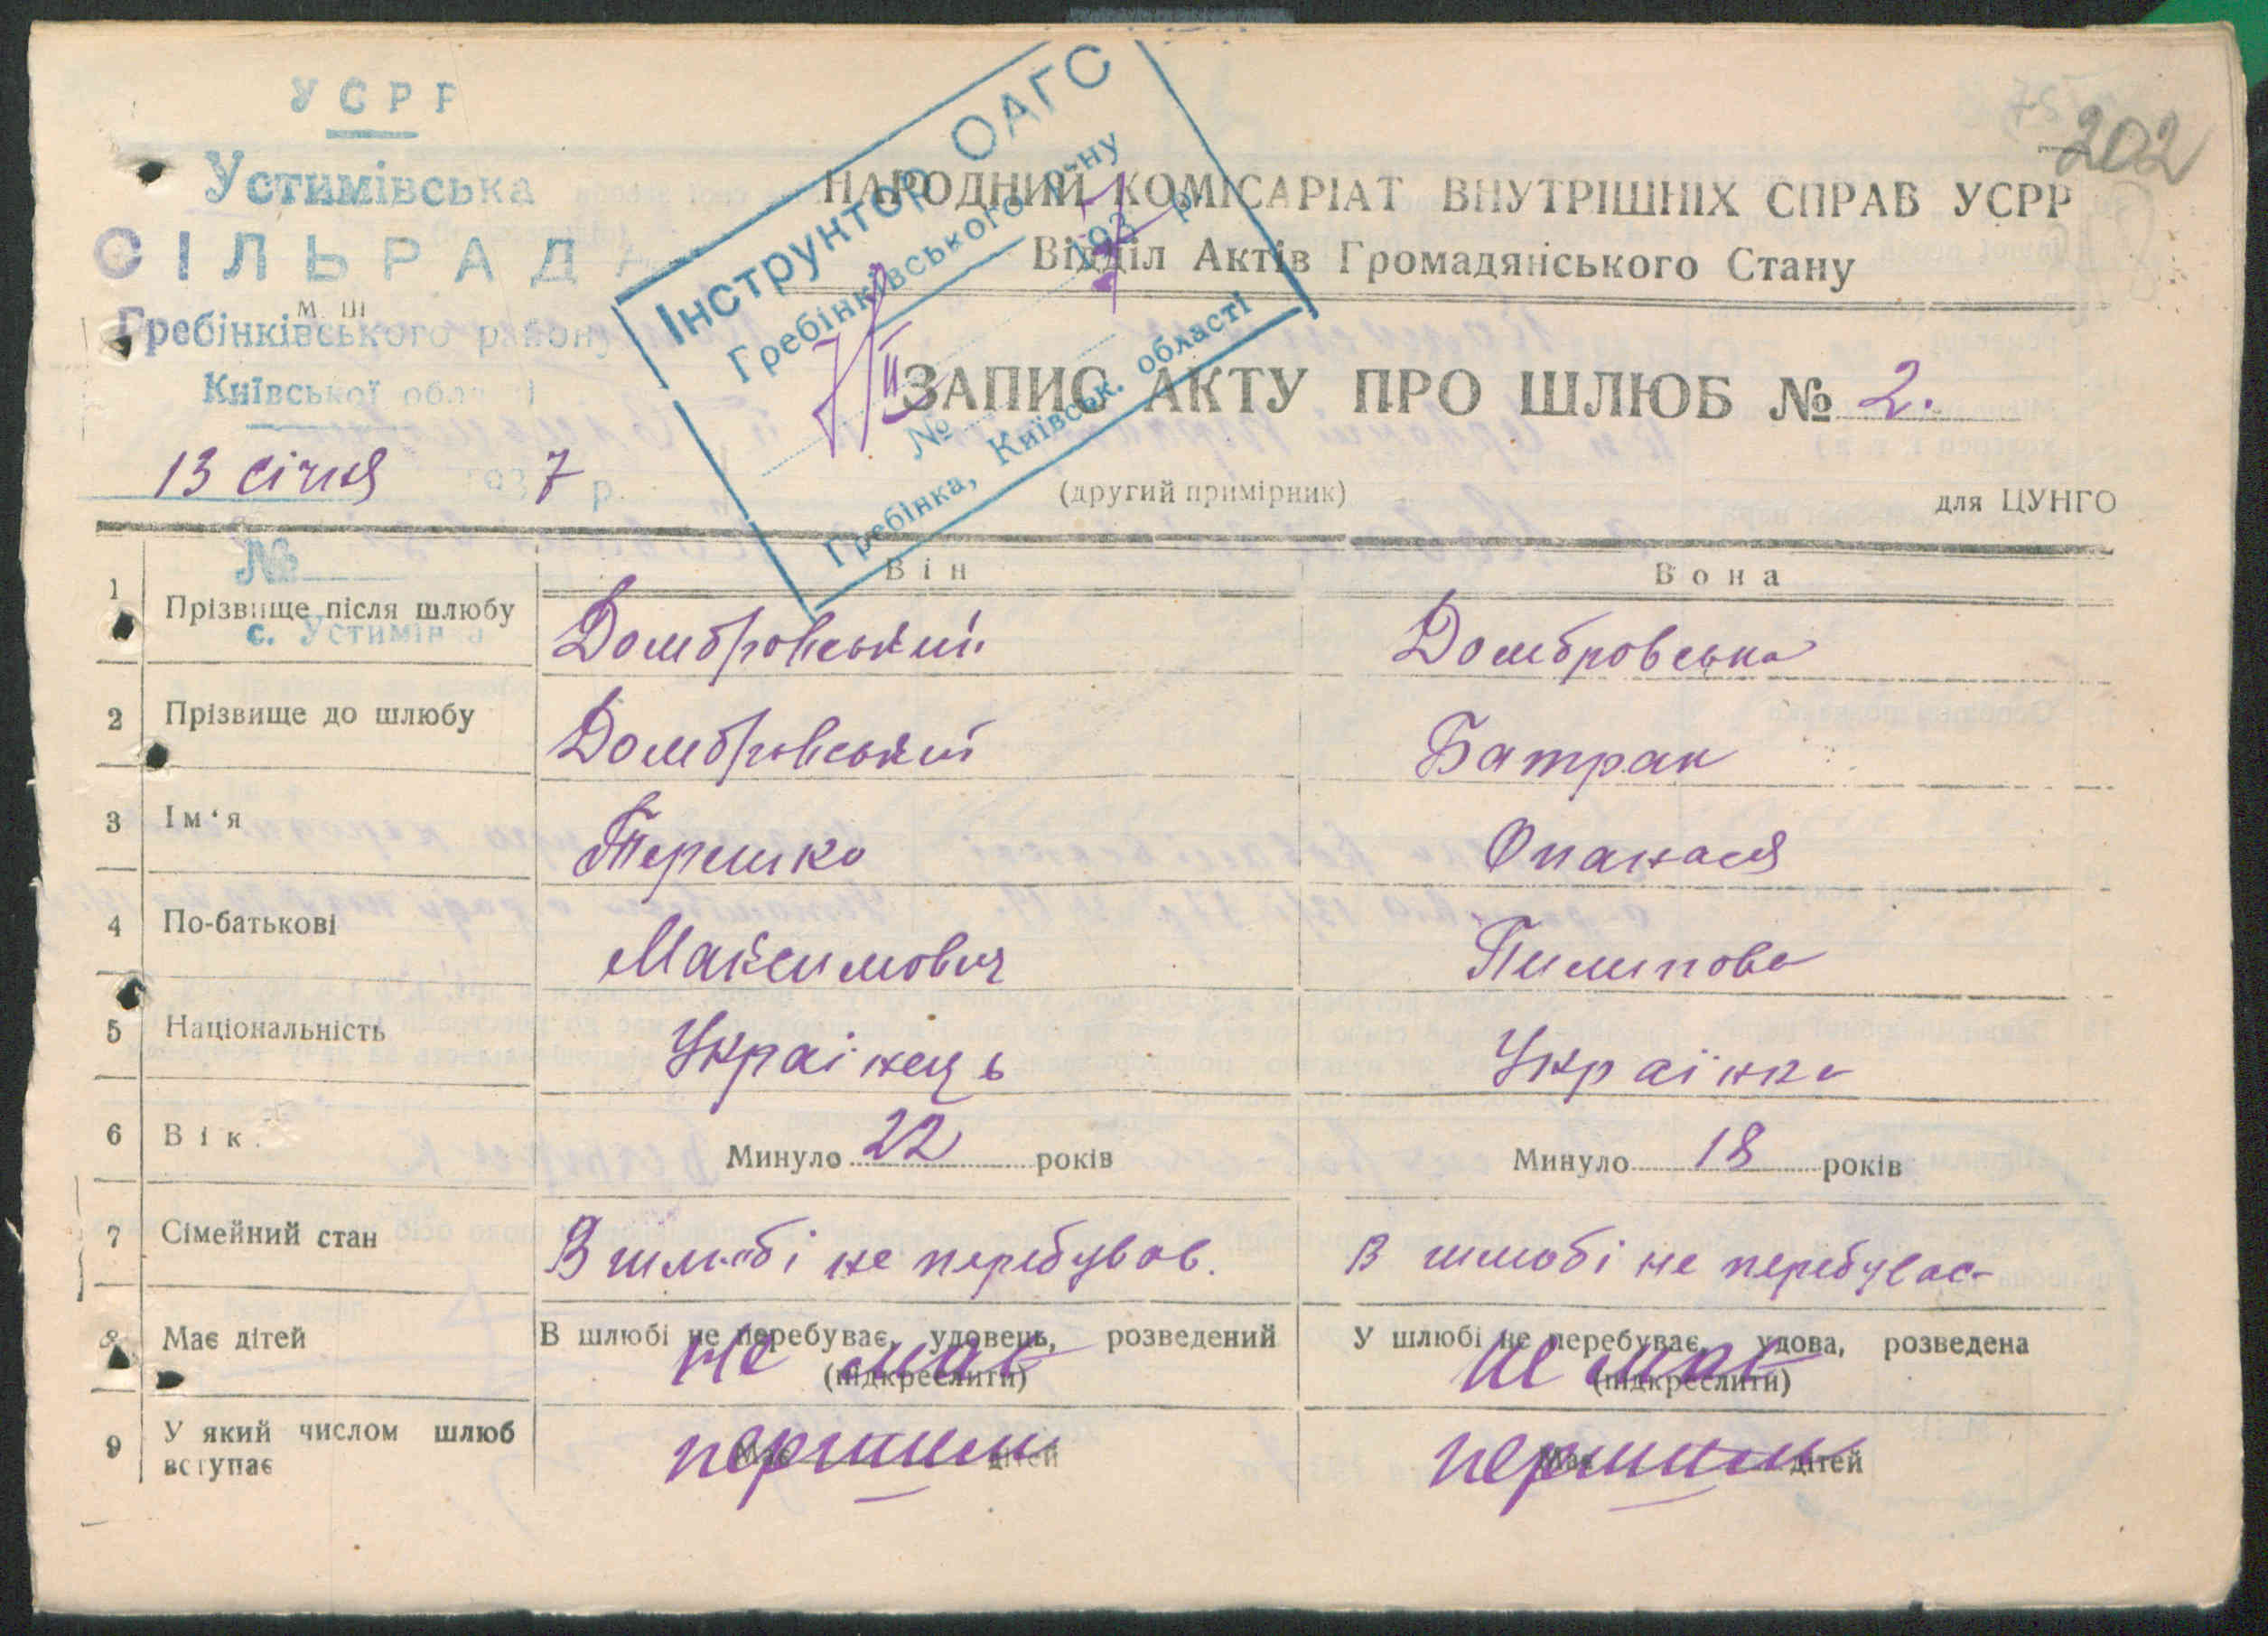 202
УСРР
Устимівська
СІЛЬРАДА
м. ш
Гребінківського району
Київської області
13 січня 1937 р.
№
с. Устимівка
Інструктор ОАГС
Гребінківського р-ну
7/II 1937 р.
№
Гребінка, Київськ. області
НАРОДНИЙ КОМІСАРІАТ ВНУТРІШНІХ СПРАВ УСРР
Відділ Актів Громадянського Стану
ЗАПИС АКТУ ПРО ШЛЮБ № 2.
(другий примірник) для ЦУНГО
Він Вона
1 Прізвище після шлюбу Домбровський Домбровська
2 Прізвище до шлюбу Домбровський Батрак
3 Ім‘я Терешко Опанася
4 По-батькові Максимович Пилипова
5 Національність Українець Українка
6 Вік. Минуло 22 років Минуло 18 років
7 Сімейний стан В шлюбі не перебував. В шлюбі не перебуває
8 Має дітей В шлюбі не перебуває, удовець, розведений У шлюбі не перебуває, удова, розведена
(підкреслити) (підкреслити)
не має не має
9 У який числом шлюб вступає Має дітей Має дітей
першим першим